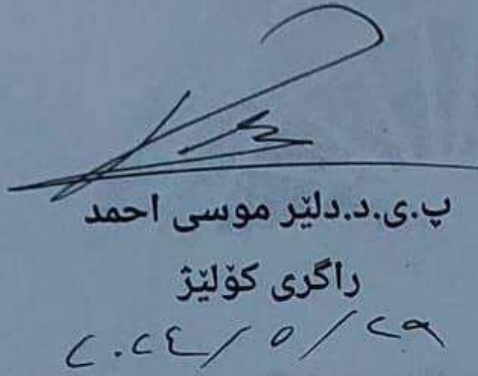 پ.ی.د.دلێر موسی احمد
راگری کۆلێژ
٢٠٢٤/٥/٢٩